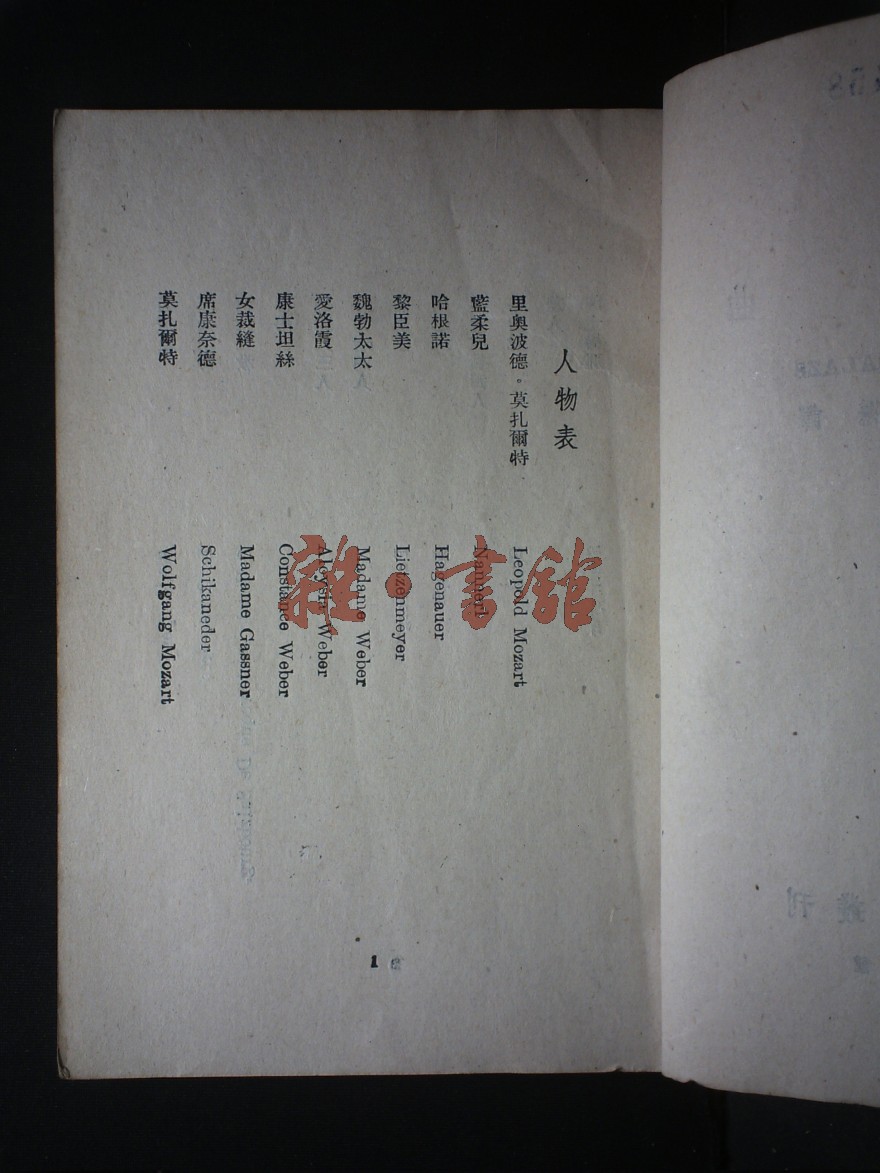 人物表
里奧波德。莫扎爾特 Leopold Mozart
藍柔兒 Nannerl
哈根諾 Hagenauer
黎臣美 Lietzenmeyer
魏勃太太 Madame Weber
愛洛霞 Aloysia Weber
康士坦絲 Constance Weber
女裁縫 Madame Gassner
席康奈德 Schikaneder
莫扎爾特 Wolfgang Mozart
1
雜·書舘